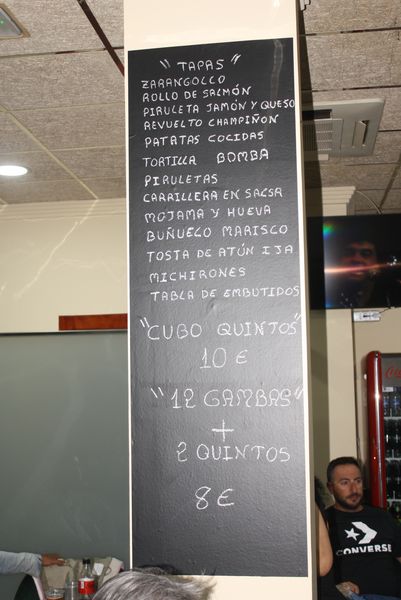 "TAPAS"
ZARANGOLLO
ROLLO DE SALMÓN
PIRULETA JAMÓN Y QUESO
REVUELTO CHAMPIÑON
PATATAS COCIDAS
TORTILLA BOMBA
PIRULETAS
CARRILLERA EN SALSA
MOJAMA Y HUEVA
BUÑUELO MARISCO
TOSTA DE ATÚN I JA
MICHIRONES
TABLA DE EMBUTIDOS
"CUBO QUINTOS"
10 €
"12 GAMBAS"
+
2 QUINTOS
8 €
CONVERSE